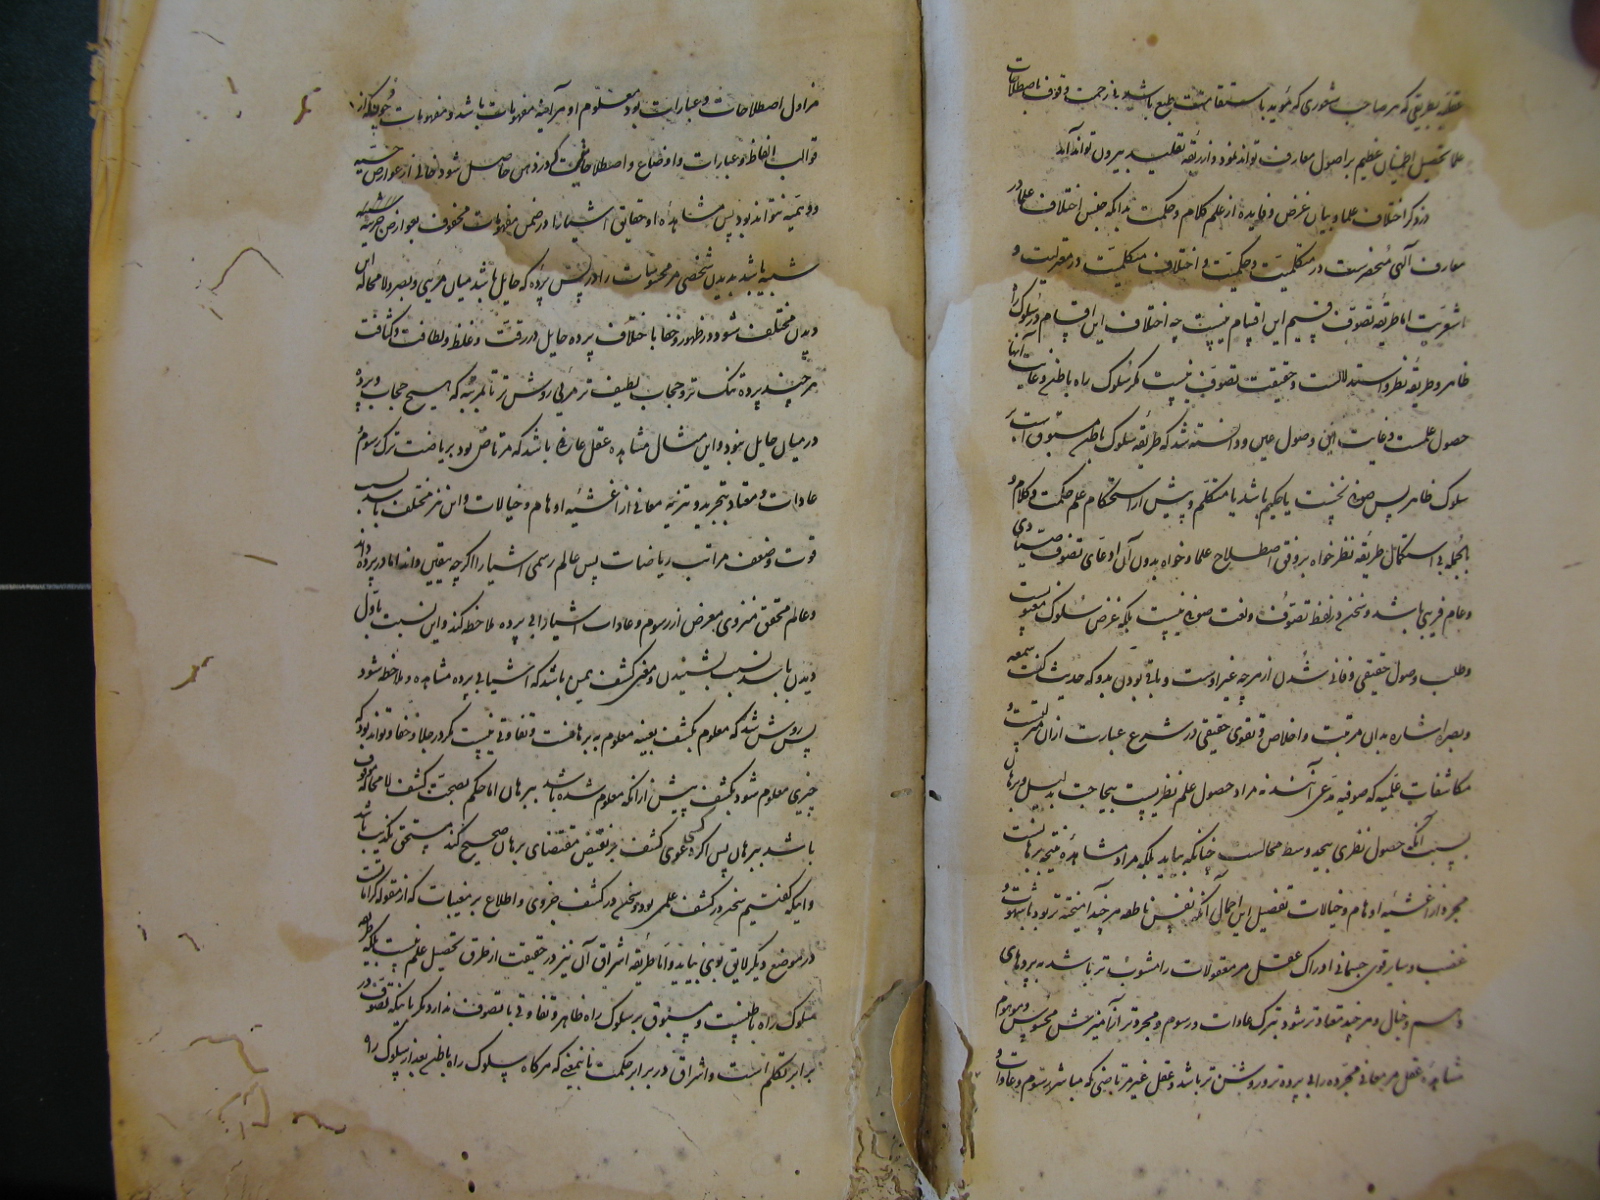 عقلیّه بطریقی که هر صاحب شعوری که مؤید باستقامت طبع باشد بی زحمت وقوف باصطلاحات
علما تحصیل اطمینان عظیم بر اصول معارف تواند نمود و از ربقه تقلید بیرون تواند آمد
در ذکر اختلاف علما و بیان غرض و فایده از علم کلام و حکمت بدانکه جنس اختلاف علما در
معارف آلهی منحصر ست در متکلمیّت و حکمیّت و اختلاف متکلمیّت در معتزلیت و
اشعریّت اما طریقه تصوّف قسیم این اقسام نیست چه اختلاف این اقسام در سلوک راه
ظاهر و طریقه نظر و استدلالست و حقیقت تصوّف نیست مگر سلوک راه باطن و غایت آنها
حصول علمست و غایت این وصول عین و دانسته شد که طریقه سلوک باطن مسبوق است به
سلوک ظاهر پس صوفی نخست یا حکیم باشد یا متکلم و پیش از استحکام علم حکمت و کلام و
بالجمله بی استکمال طریقه نظر خواه بر وفق اصطلاح علما و خواه بدون آن ادعای تصوف صیّادی
و عام فریبی باشد و سخن در لفظ تصوّف و لغت صوفی نیست بلکه غرض سلوک معنویست
و طلب وصول حقیقی و فانی شدن از هر چه غیر اوست و باقی بودن بدو که حدیث کنت سمعه
و بصره اشاره بدان مرتبت و اخلاص و تقوی حقیقی در شرع عبارت از آن منزلت و
مکاشفات علمیه که صوفیه مدعی آنند نه مراد حصول علم نظریست بیحاجت بدلیل و برهان
بسبب آنکه حصول نظری بیحد وسط محالست چنانکه بیاید بلکه مراد مشاهده نتیجه برهانست
مجرد از اغشیه اوهام و خیالات تفصیل این اجمال آنکه نفس ناطقه هر چند آمیخته تر بود بشهوت و
غضب و سایر قوی جسمانی ادراک عقل مر معقولات را مشوب تر باشد به پردهای
وهم و خیال و هر چند معتادتر شود بترک عادات و رسوم و مجردتر از آمیزش محسوس و موهوم
مشاهده عقل مر معانی مجرّده را بی پرده تر و روشن تر باشد و عقل غیر مرتاضی که مباشر رسوم و عادات و
مزاول اصطلاحات و عبارات بود معلوم او هر آینه مفهومات باشد و مفهومات چون که از
قوالب الفاظ و عبارات و اوضاع و اصطلاحات در ذهن حاصل شود خالی از عوارض حسّیه
و وهمیّه نتواند بود پس مشاهده او حقایق اشیا را در ضمن مفهومات محفوف بعوارض غریبه
شبیه باشد بدیدن شخصی مر محسوسات را در پس پرده که حایل باشد میان مرئی و بصر و لا محاله این
دیدن مختلف شود در ظهور و خفا باختلاف پرده حایل در رقّت و غلظ و لطافت و کثافت
هر چند پرده تنک تر و حجاب لطیف تر مرئی روشن تر تا بمرتبه که هیچ حجاب و پرده
در میان حایل نبود و این مثال مشاهده عقل عارفی باشد که مرتاض بود بریاضت ترک رسوم
عادات و معتاد بتجرید و تنزیه معانی از اغشیه اوهام و خیالات و این نیز مختلف باشد بسبب
قوت و ضعف مراتب ریاضات پس عالم رسمی اشیا را اگر چه بیقین داند اما در پرده داند
و عالم محقق منزوی معرض از رسوم و عادات اشیا را بی پرده ملاحظه کند و این نسبت باوّل
دیدن باشد نسبت بشنیدن و معنی کشف همین باشد که اشیا بی پرده مشاهده و ملاحظه شود
پس روشن شد که معلوم بکشف بعینه معلوم به برهانست و تفاوتی نیست مگر در جلا و خفا و تواند بود که
چیزی معلوم شود بکشف پیش از آنکه معلوم شده باشد ببرهان اما حکم بصحت کشف لا محاله موقوف
باشد ببرهان پس اگر کسی دعوی کشف بر نقیض مقتضای برهان صحیح کند مستحق تکذیب باشد
و اینکه گفتیم سخن در کشف علمی بود و سخن در کشف جزوی و اطلاع بر مغیبات که از مقوله کراماتست
در موضع دیگر لایق بوی بیاید و اما طریقه اشراق آن نیز در حقیقت از طرق تحصیل علم نیست بلکه طریقه
سلوک راه باطنست و مسبوق بر سلوک راه ظاهر و تفاوتی با تصوف ندارد مگر باینکه تصوّف در
برابر تکلم است و اشراق در برابر حکمت باینمعنی که هر گاه سلوک راه باطن بعد از سلوک راه